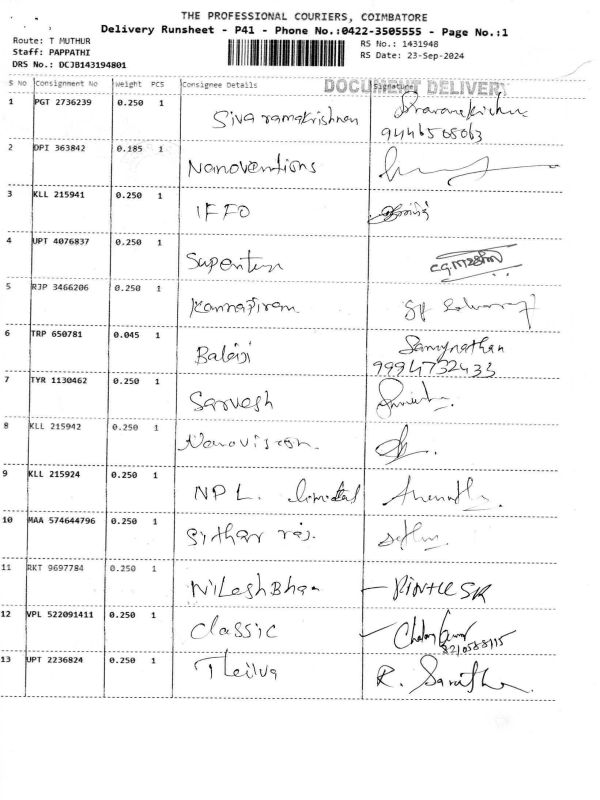 THE PROFESSIONAL COURIERS, COIMBATORE
Delivery Runsheet - P41 - Phone No.:0422-3505555 - Page No.:1
Route: T MUTHUR
RS No.: 1431948
Staff: PAPPATHI
RS Date: 23-Sep-2024
DRS No.: DCJB143194801
DOCUMENT DELIVERY
S No Consignment No Weight PCS Consignee Details Signature
1 PGT 2736239 0.250 1 Siva ramakrishnan
9446508063
2 DPI 363842 0.185 1 Nanoventions
3 KLL 215941 0.250 1 IFFO
4 UPT 4076837 0.250 1
5 RJP 3466206 0.250 1
6 TRP 650781 0.045 1 Balaji Samynathan
9994732433
7 TYR 1130462 0.250 1 Sarvesh
8 KLL 215942 0.250 1 Nanovision.
9 KLL 215924 0.250 1 NPL. limited
10 MAA 574644796 0.250 1
11 RKT 9697784 0.250 1 NiLeshBhai
12 VPL 522091411 0.250 1 Classic
13 UPT 2236824 0.250 1 R.